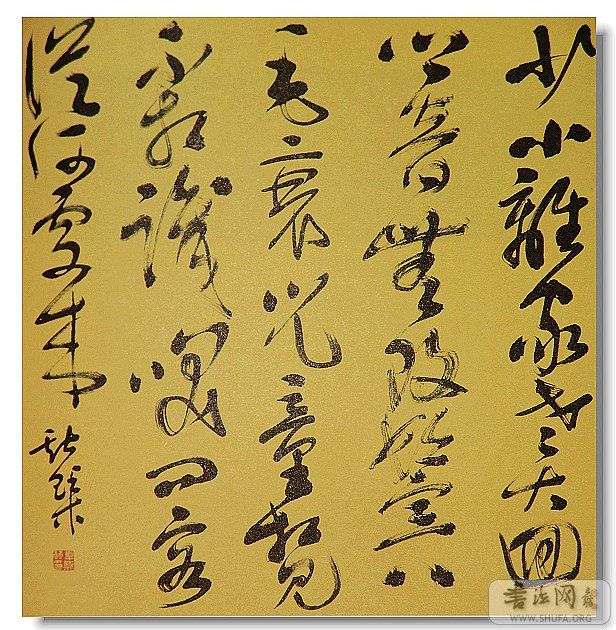 少小離家老大回
鄉音無改鬢
毛衰兒童相見
不相識咲問客
從何處來
書法网
WWW.SHUFA.ORG